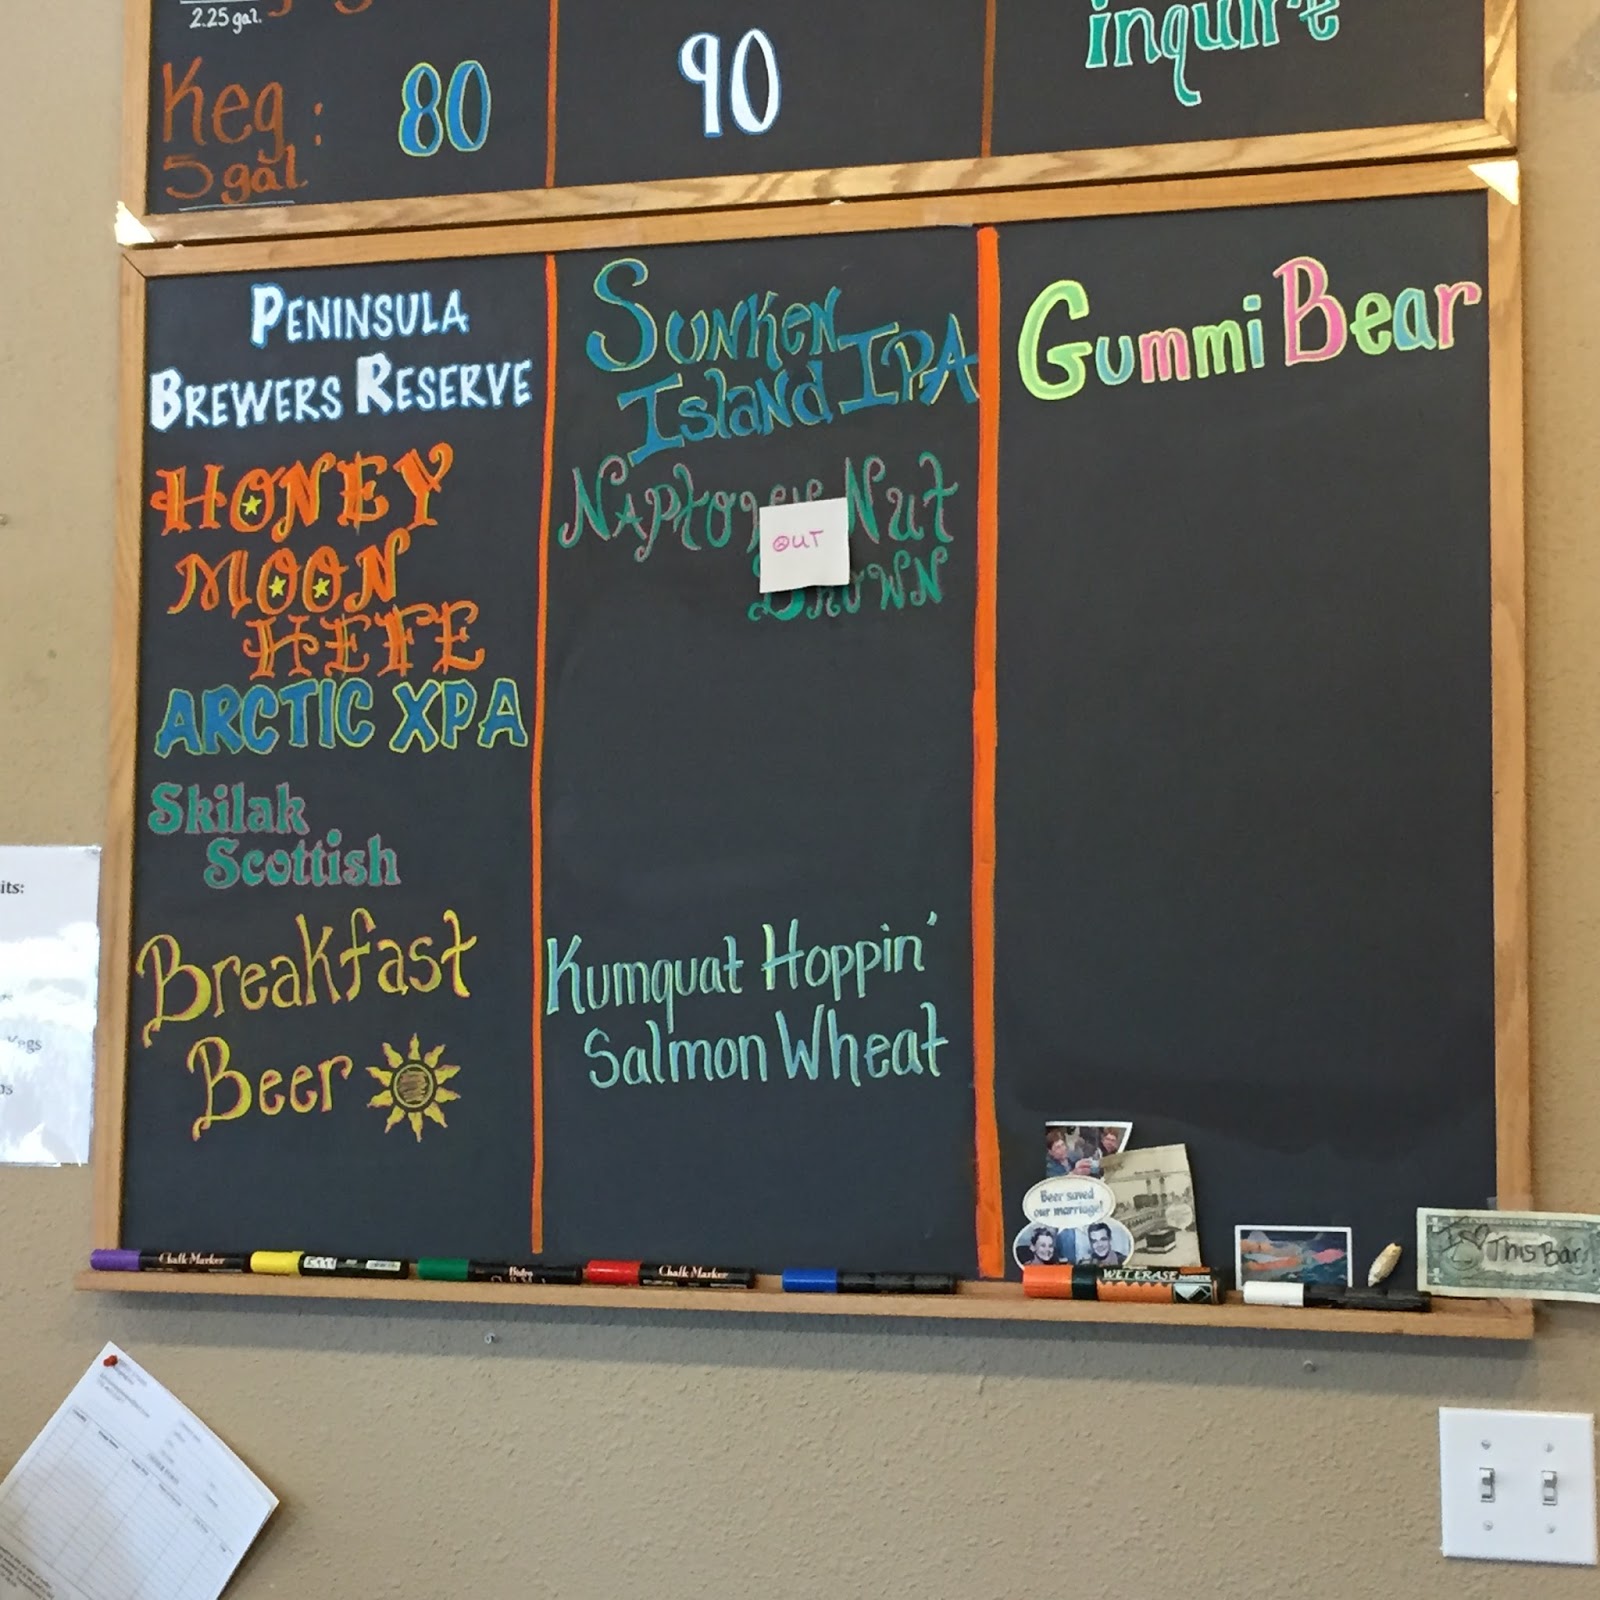 2.25 gal.
Keg: 80
5 gal.
90
inquire
PENINSULA
BREWERS RESERVE
HONEY
MOON
HEFE
ARCTIC XPA
Skilak
Scottish
Breakfast
Beer
Sunken
Island IPA
Nut
OUT
BROWN
Kumquat Hoppin'
Salmon Wheat
Gummi Bear
its:
Kegs
Beer saved
our marriage!
I This Bar!
Chalk Marker
Chalk Marker
WET ERASE